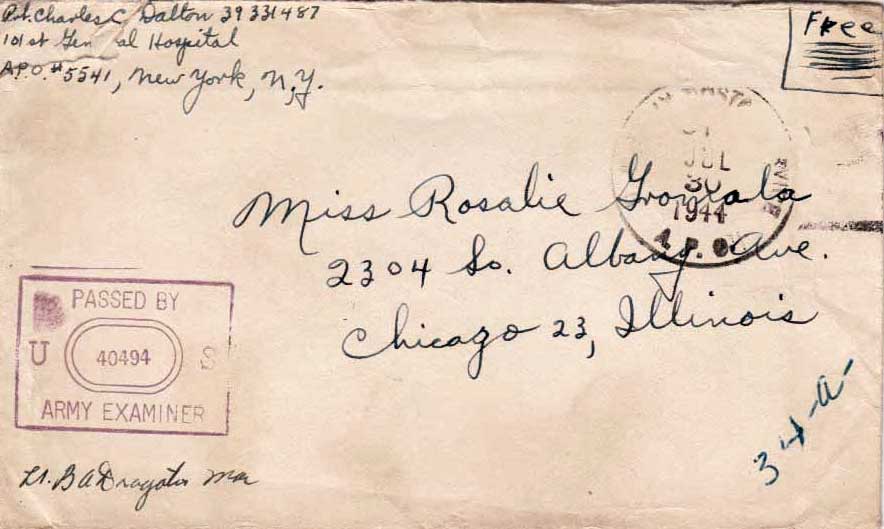 Pvt. Charles C Dalton 39331487
101st Gen al Hospital
A.P.O. #5541, New York, N.Y.
Free
JUL
30
1944
A.P.O.
Miss Rosalie
2304 So. Albany. Ave.
Chicago 23, Illinois
PASSED BY
U 40494 S
ARMY EXAMINER
Lt. B A
34-a-